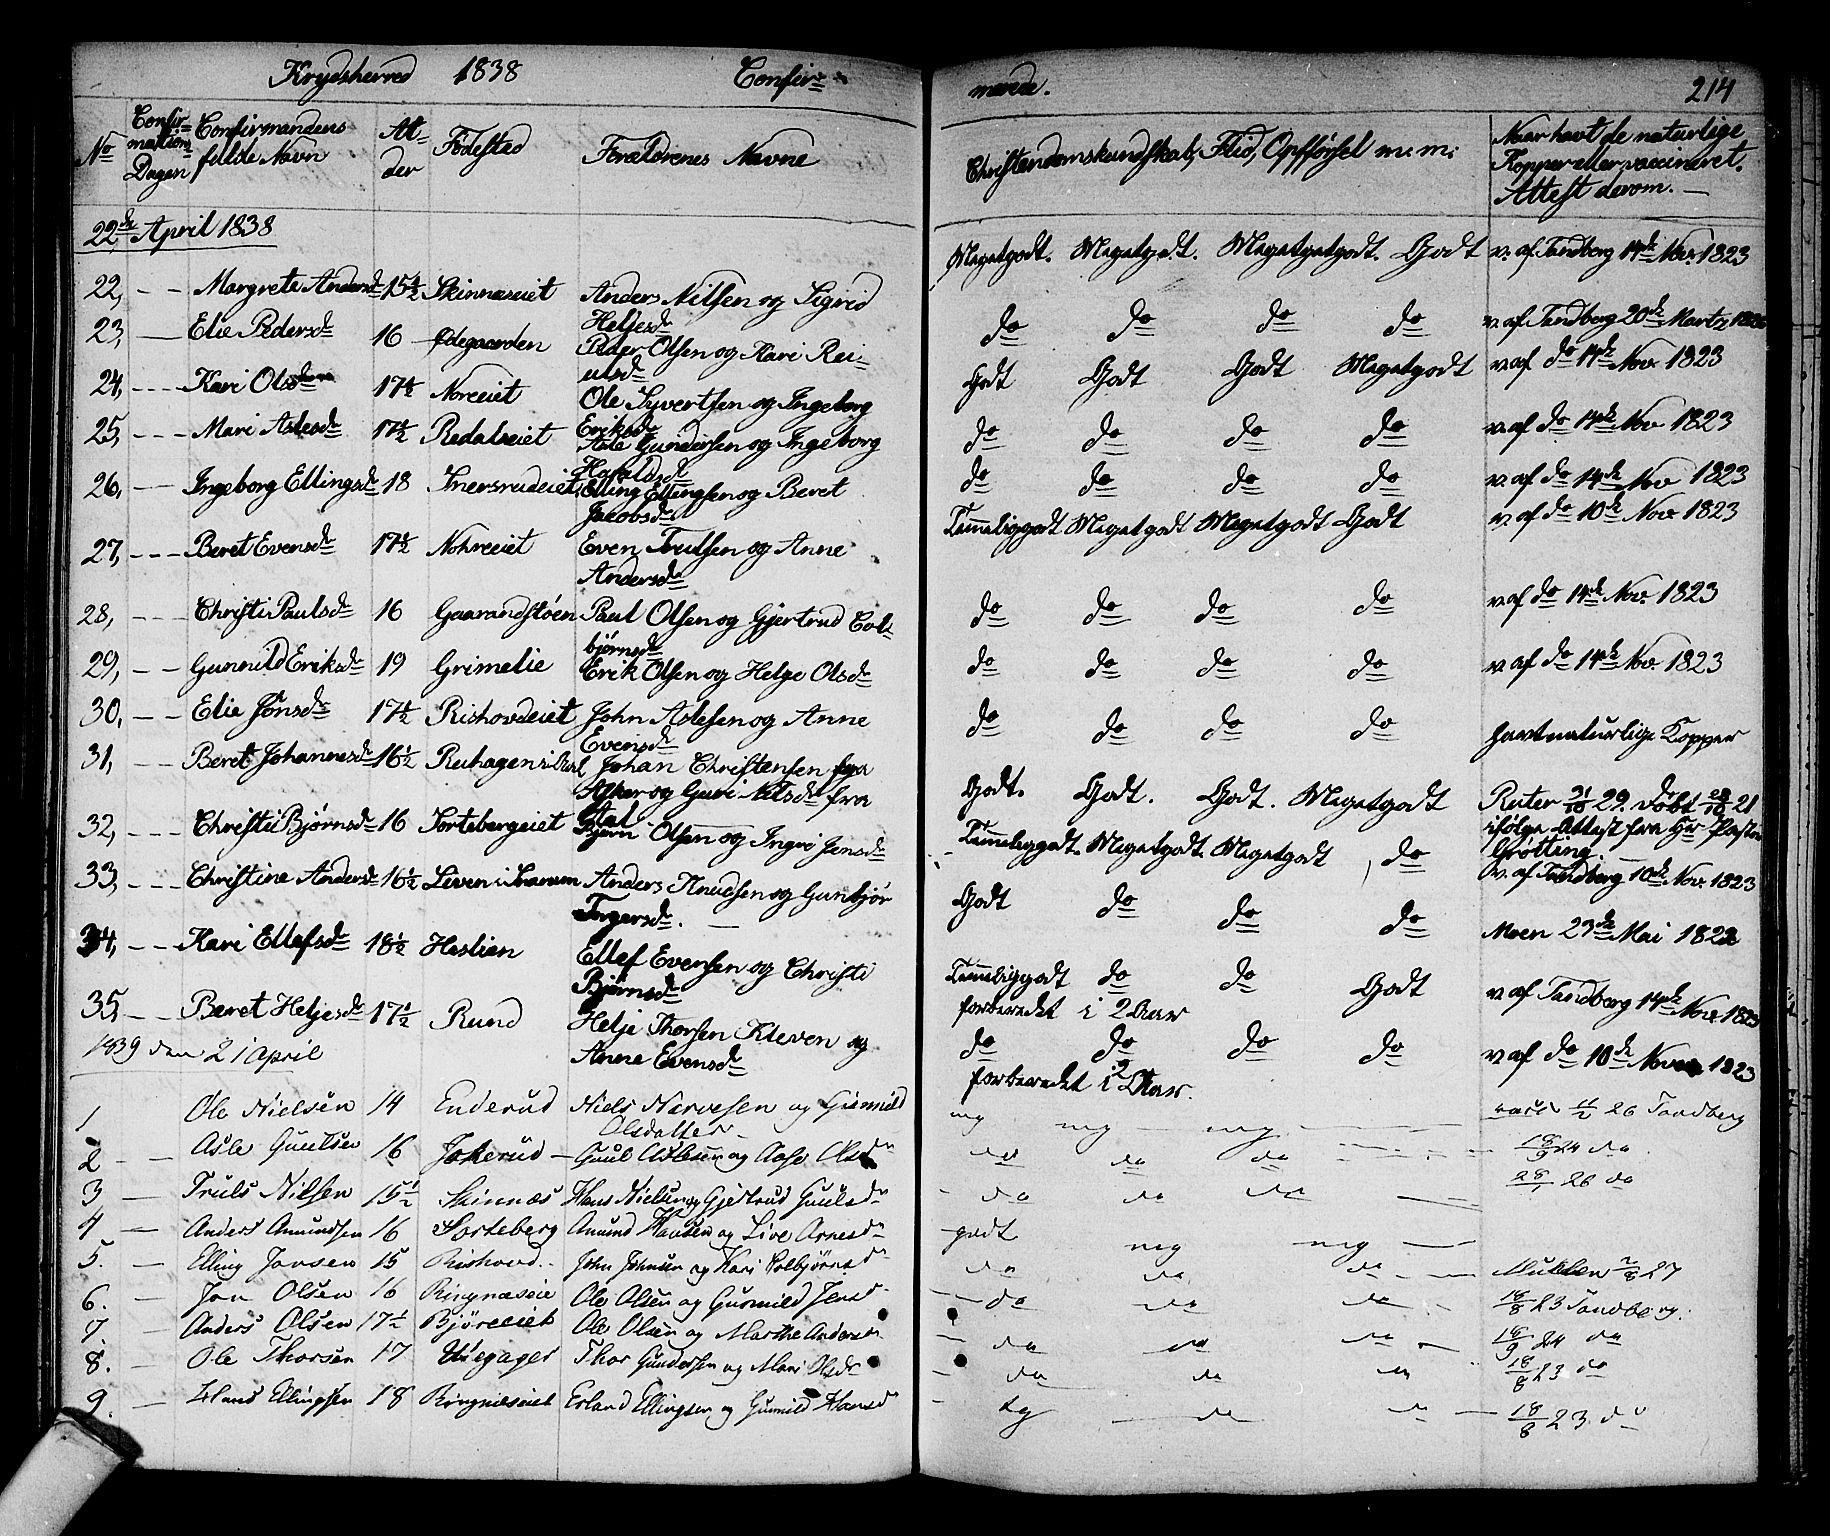 Krydsherred 1838 Confir-
No
Confir-
mations
Dagen
Confirmandens
fulde Navn
Al-
der
Fødested
Forældrenes Navne
22de April 1838
22, - - Margrete Andersd 15½ Skinnæseiet Anders Nilsen og Sigrid
Heljesd
23, - Elie Pedersd 16 Ødegaarden Peder Olsen og Kari Rei-
ulsd
24, - - - Kari Olsd 17½ Noreeiet Ole Syvertsen og Ingeborg
Eriksd
25, - - - Mari Aslesd 17½ Redalseiet Asle Gundersen og Ingeborg
Haraldsd
26, - Ingeborg Ellingsd 18 Snersrudeiet Elling Ellingsen og Beret
Jacobsd
27, - - - Beret Evensd 17½ Nohreeiet Even Trulsen og Anne
Andersd
28, - - - Christi Paulsd 16 Gaarandstøen Paul Olsen og Gjertrud Col-
bjørnsd
29, - - Gunnild Eriksd 19 Grimelie Erik Olsen og Helge Olsd
30, - - Elie Jonsd 17½ Rishovdeiet John Aslesen og Anne
Evensd
31, - Beret Johannesd 16½ Ruhagen i Aal Johan Christensen fra
Asker og Guri Nilsd fra
Aal
32, - - - Christi Bjørnsd 16 Sortebergeiet Bjørn Olsen og Ingri Jensd
33, - - - Christine Andersd 16½ Leven i Snarum Anders Knudsen og Gunbjør
Ingersd. -
34, - - Kari Ellefsd 18½ Heslien Ellef Evensen og Christi
Bjørnsd
35, - - Beret Heljesd 17½ Rund Helje Thorsen Kleven og
Anne Evensd
1839 den 21 April
1 Ole Nielsen 14 Enderud Niels Narvesen og Gunnild
Olsdatter
2 - - Asle Guulsen 16 Jokerud - Guul Aslesen og Aase Olsd
3 - Truls Nilsen 15½ Skinnæs Hans Nielsen og Gjertrud Guulsd
4 - Anders Amundsen 16 Sorteberg Amund Hansen og Live Arnesd
5. - Elling Jonsen 15 Rishovd John Johnsen og Kari Colbjørnsd
6. - Jon Olsen 16 Ringnæseie Ole Olsen og Gunnild Jensd
7 - Anders Olsen 17½ Bjøreeiet Ole Olsen og Marthe Andersd
8. - Ole Thorsen 17 Thor Gundersen og Mari Olsd
9. - Ellingsen 18 Ringnæseiet Erland Ellingsen og Gunnild Hansd
merede. 214
Christendomskundskab, Flid, Opførsel m: m:
Naar havt de naturlige
Kopper eller vaccineret.
Attest derom. -
Megetgodt. Megetgodt. Megetgodt. Godt v. af Tandberg 14de Nov. 1823
do do do do v. af Tandberg 20de Marts
Godt Godt Godt Megetgodt v af do 14de Nov 1823
do do do do v. af do 14de Nov 1823
do do do do v. af do 14de Nov 1823
Temeliggodt Megetgodt Megetgodt Godt v. af do 10de Nov 1823
do do do do v af do 14de Nov. 1823
do do do do v af do 14de Nov. 1823
do do do do havt naturlige Kopper
Godt. Godt. Godt. Megetgodt Ruter 31/10 29. døbt 28/10 21
ifølge Attest fra Hr Pastor
Grøtting. -
Temeliggodt. Megetgodt. Megetgodt do v. af Tandberg 10de Nov. 1823
Godt do do do Moen 23de Mai 1822
Temeliggodt do do Godt v af Tandberg 14de Nov 1823
forberedt i 2 Aar
do do do do v af do 10de Nov 1823
forberedt i 2 Aar.
mg mg - mg - 26 Tandberg
do do do 18/9 24 do
do do do 26 do
godt mg mg -
do do do Mukken 2/8 27
do do do 18/8 23 Tandberg.
do do do 18/9 24 do
do do do 18/8 23 do
tg do do 18/8 23 do